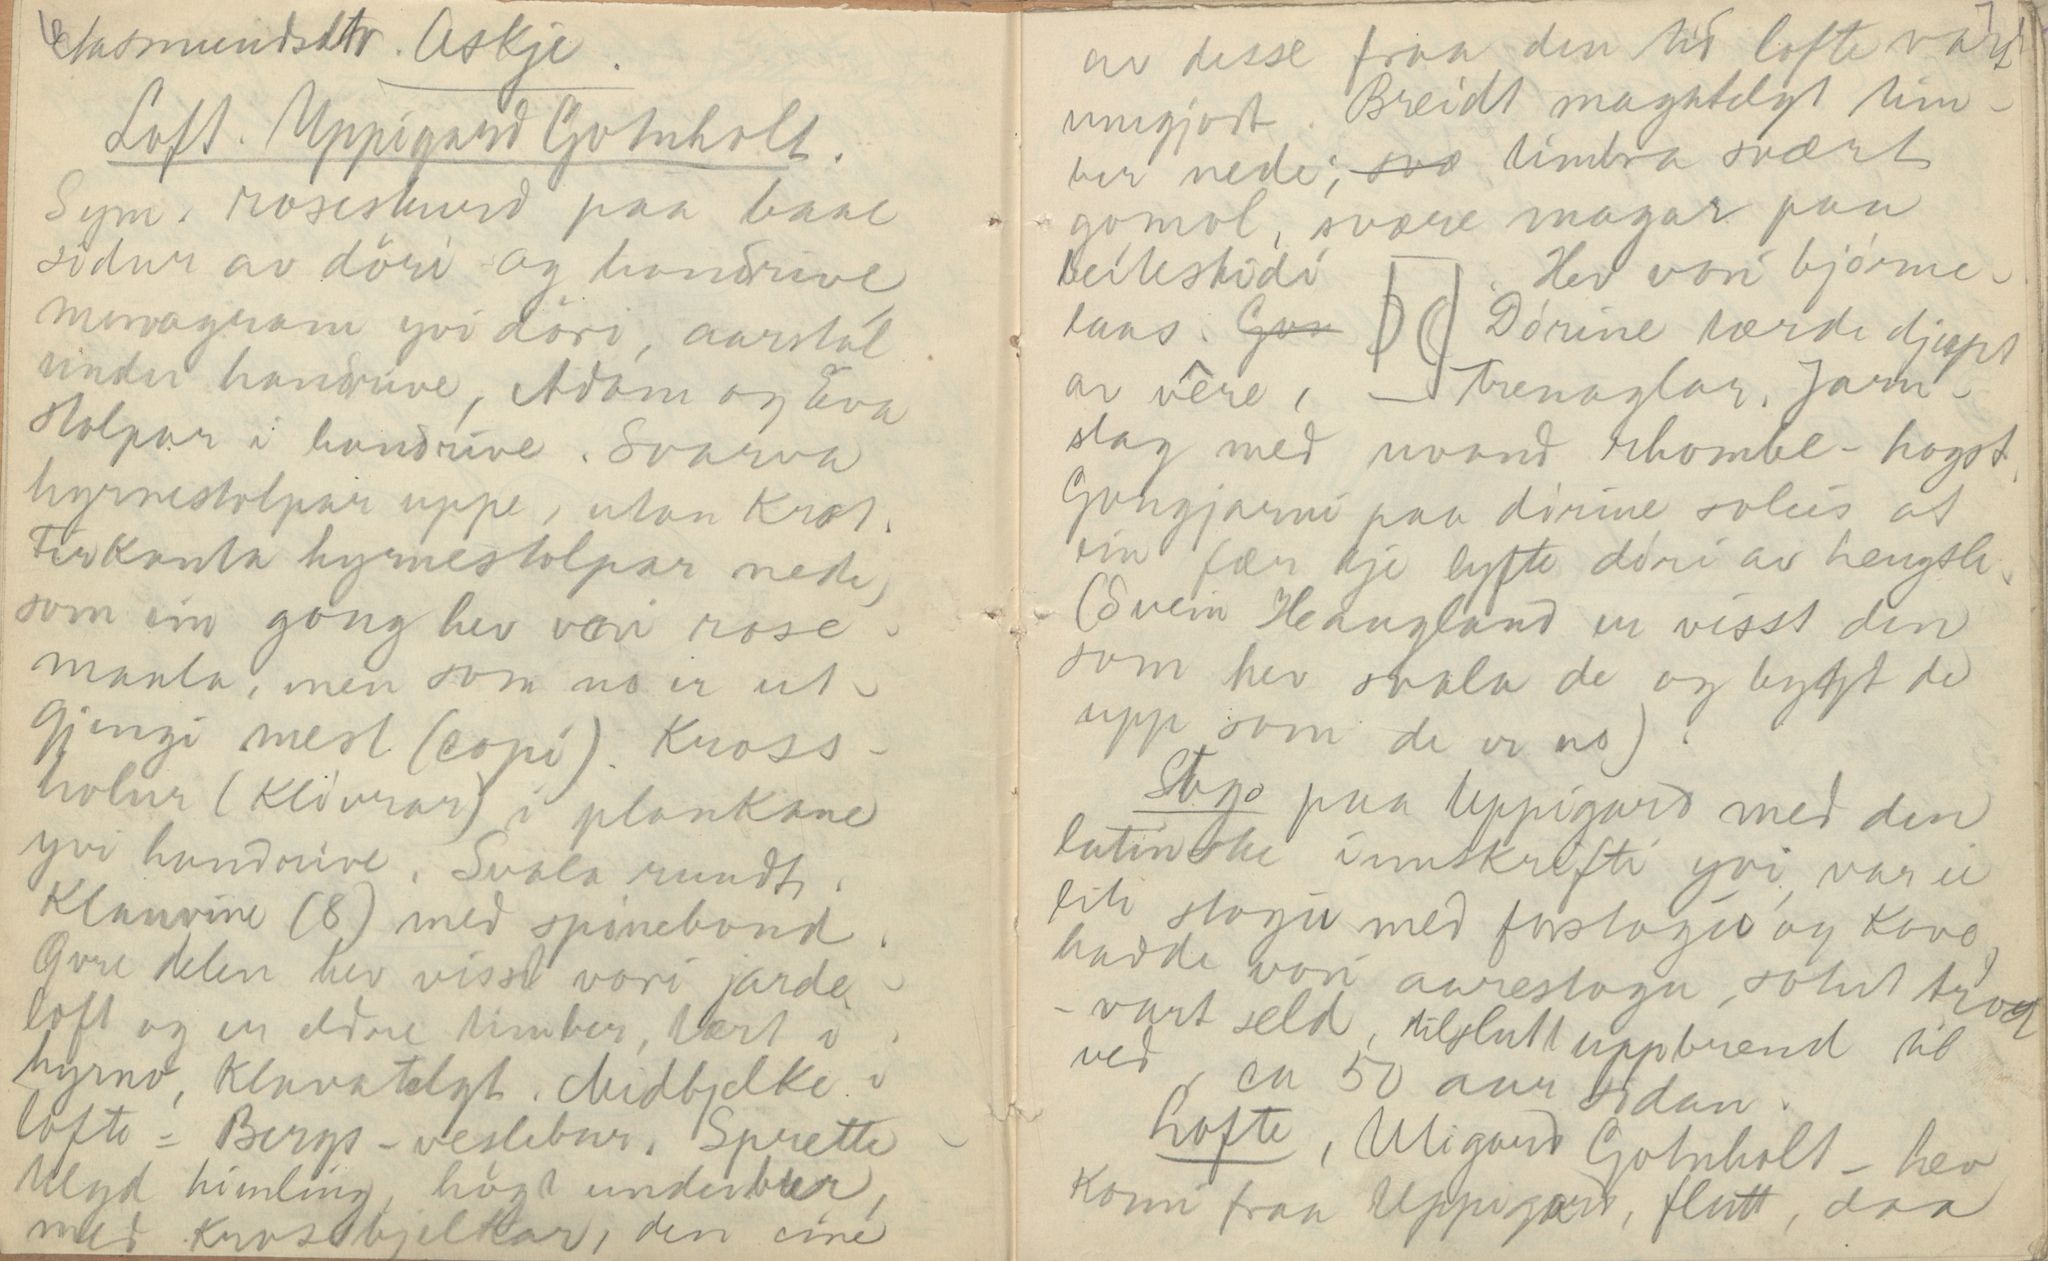 Aasmundsdtr. Askje.
Loft. Uppigard Gotuholt.
Sym. roseskurd paa baae
sidur av döri og handrive,
monagram yvi döri, aarstal
under handrive, Adam og Eva
stolpar i handrive. Svarva
hyrnestolpar uppe, utan Krot.
Firkanta hyrnestolpar nede,
som ein gong hev vori rose-
maala, men som no er ut-
gjengi mest (copi). Kross-
holur (Klövrar) i plankane
yvi handrive. Svala rundt.
Klauvine (8) med spinebond.
Övre delen hev visst vori jarde-
loft og er eldre timber, tært i
hyrno, Klavatelgt. Midbjelke i
lofte = Bergs-veslebur. Sprette-
telgd himling, högt under
med Krossbjelkar, den eine
av desse fraa den tid lofte vart
umgjort. Breidt magatelgt tim-
ber nede; svæ timbra svært
gomol, svære magar paa
beiteskidi. Hev vori bjórne-
laas. Dórine tærde djupt
av vêre, — trenaglar. Jarn-
slag med uvand rhombe-hogst.
Gongjarni paa dórine soleis at
ein fær kje lyfte dóri av hengsle.
(Svein Heaugland er visst den
som hev svala de og bygt de
upp som de er no).
Stogo paa Uppigard med den
latinske innskrifti yvi, var ei
liti stogu med forstogu og Kovo,
hadde vori aurestogu, sotut traq
- vart seld, tilslutt uppbrend til
ved, ca 50 aar sidan.
Lofte, Utigard Gotuholt - hev
Komi fraa Uppigard, flutt, daa